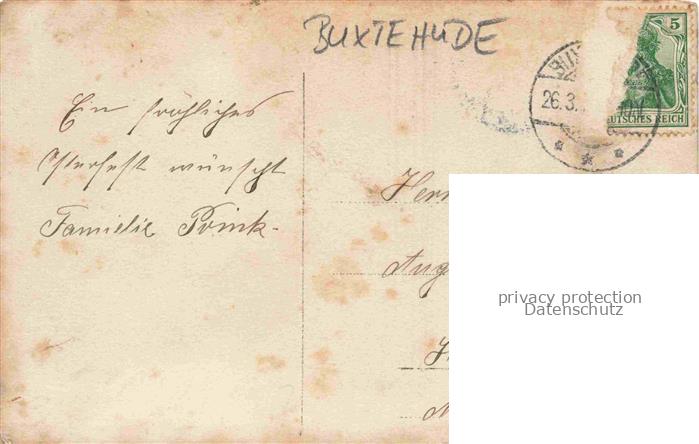 BUXTEHUDE
5
26.3.
DEUTSCHES REICH
Ein fröhliches
Osterfest wünscht
Familie Prink.
Herr
Aug
privacy protection
Datenschutz